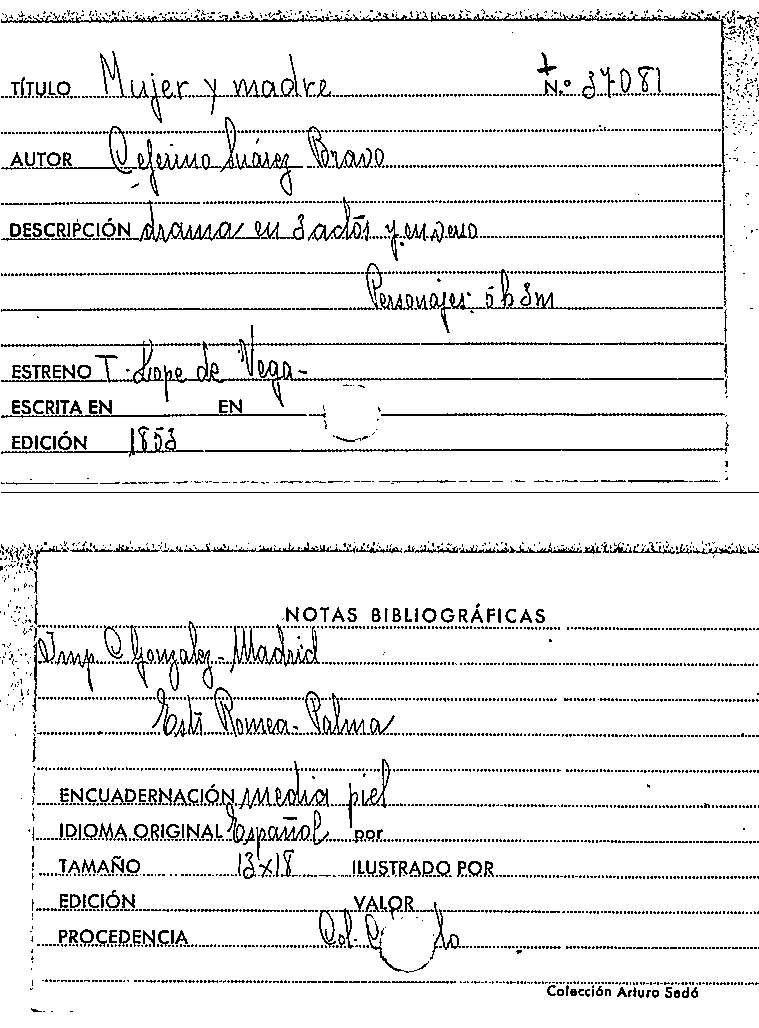 TÍTULO Mujer y madre N.º 37081
AUTOR Ceferino Suárez Bravo
DESCRIPCIÓN drama en 3 actos y en verso
Personajes: 5h 3m
ESTRENO T. Lope de Vega-
ESCRITA EN EN
EDICIÓN 1853
NOTAS BIBLIOGRÁFICAS
Imp C Gonzalez - Madrid
Romea - Palma
ENCUADERNACIÓN media piel
IDIOMA ORIGINAL Español por
TAMAÑO 13x18 ILUSTRADO POR
EDICIÓN VALOR
PROCEDENCIA Col.
Colección Arturo Sedó